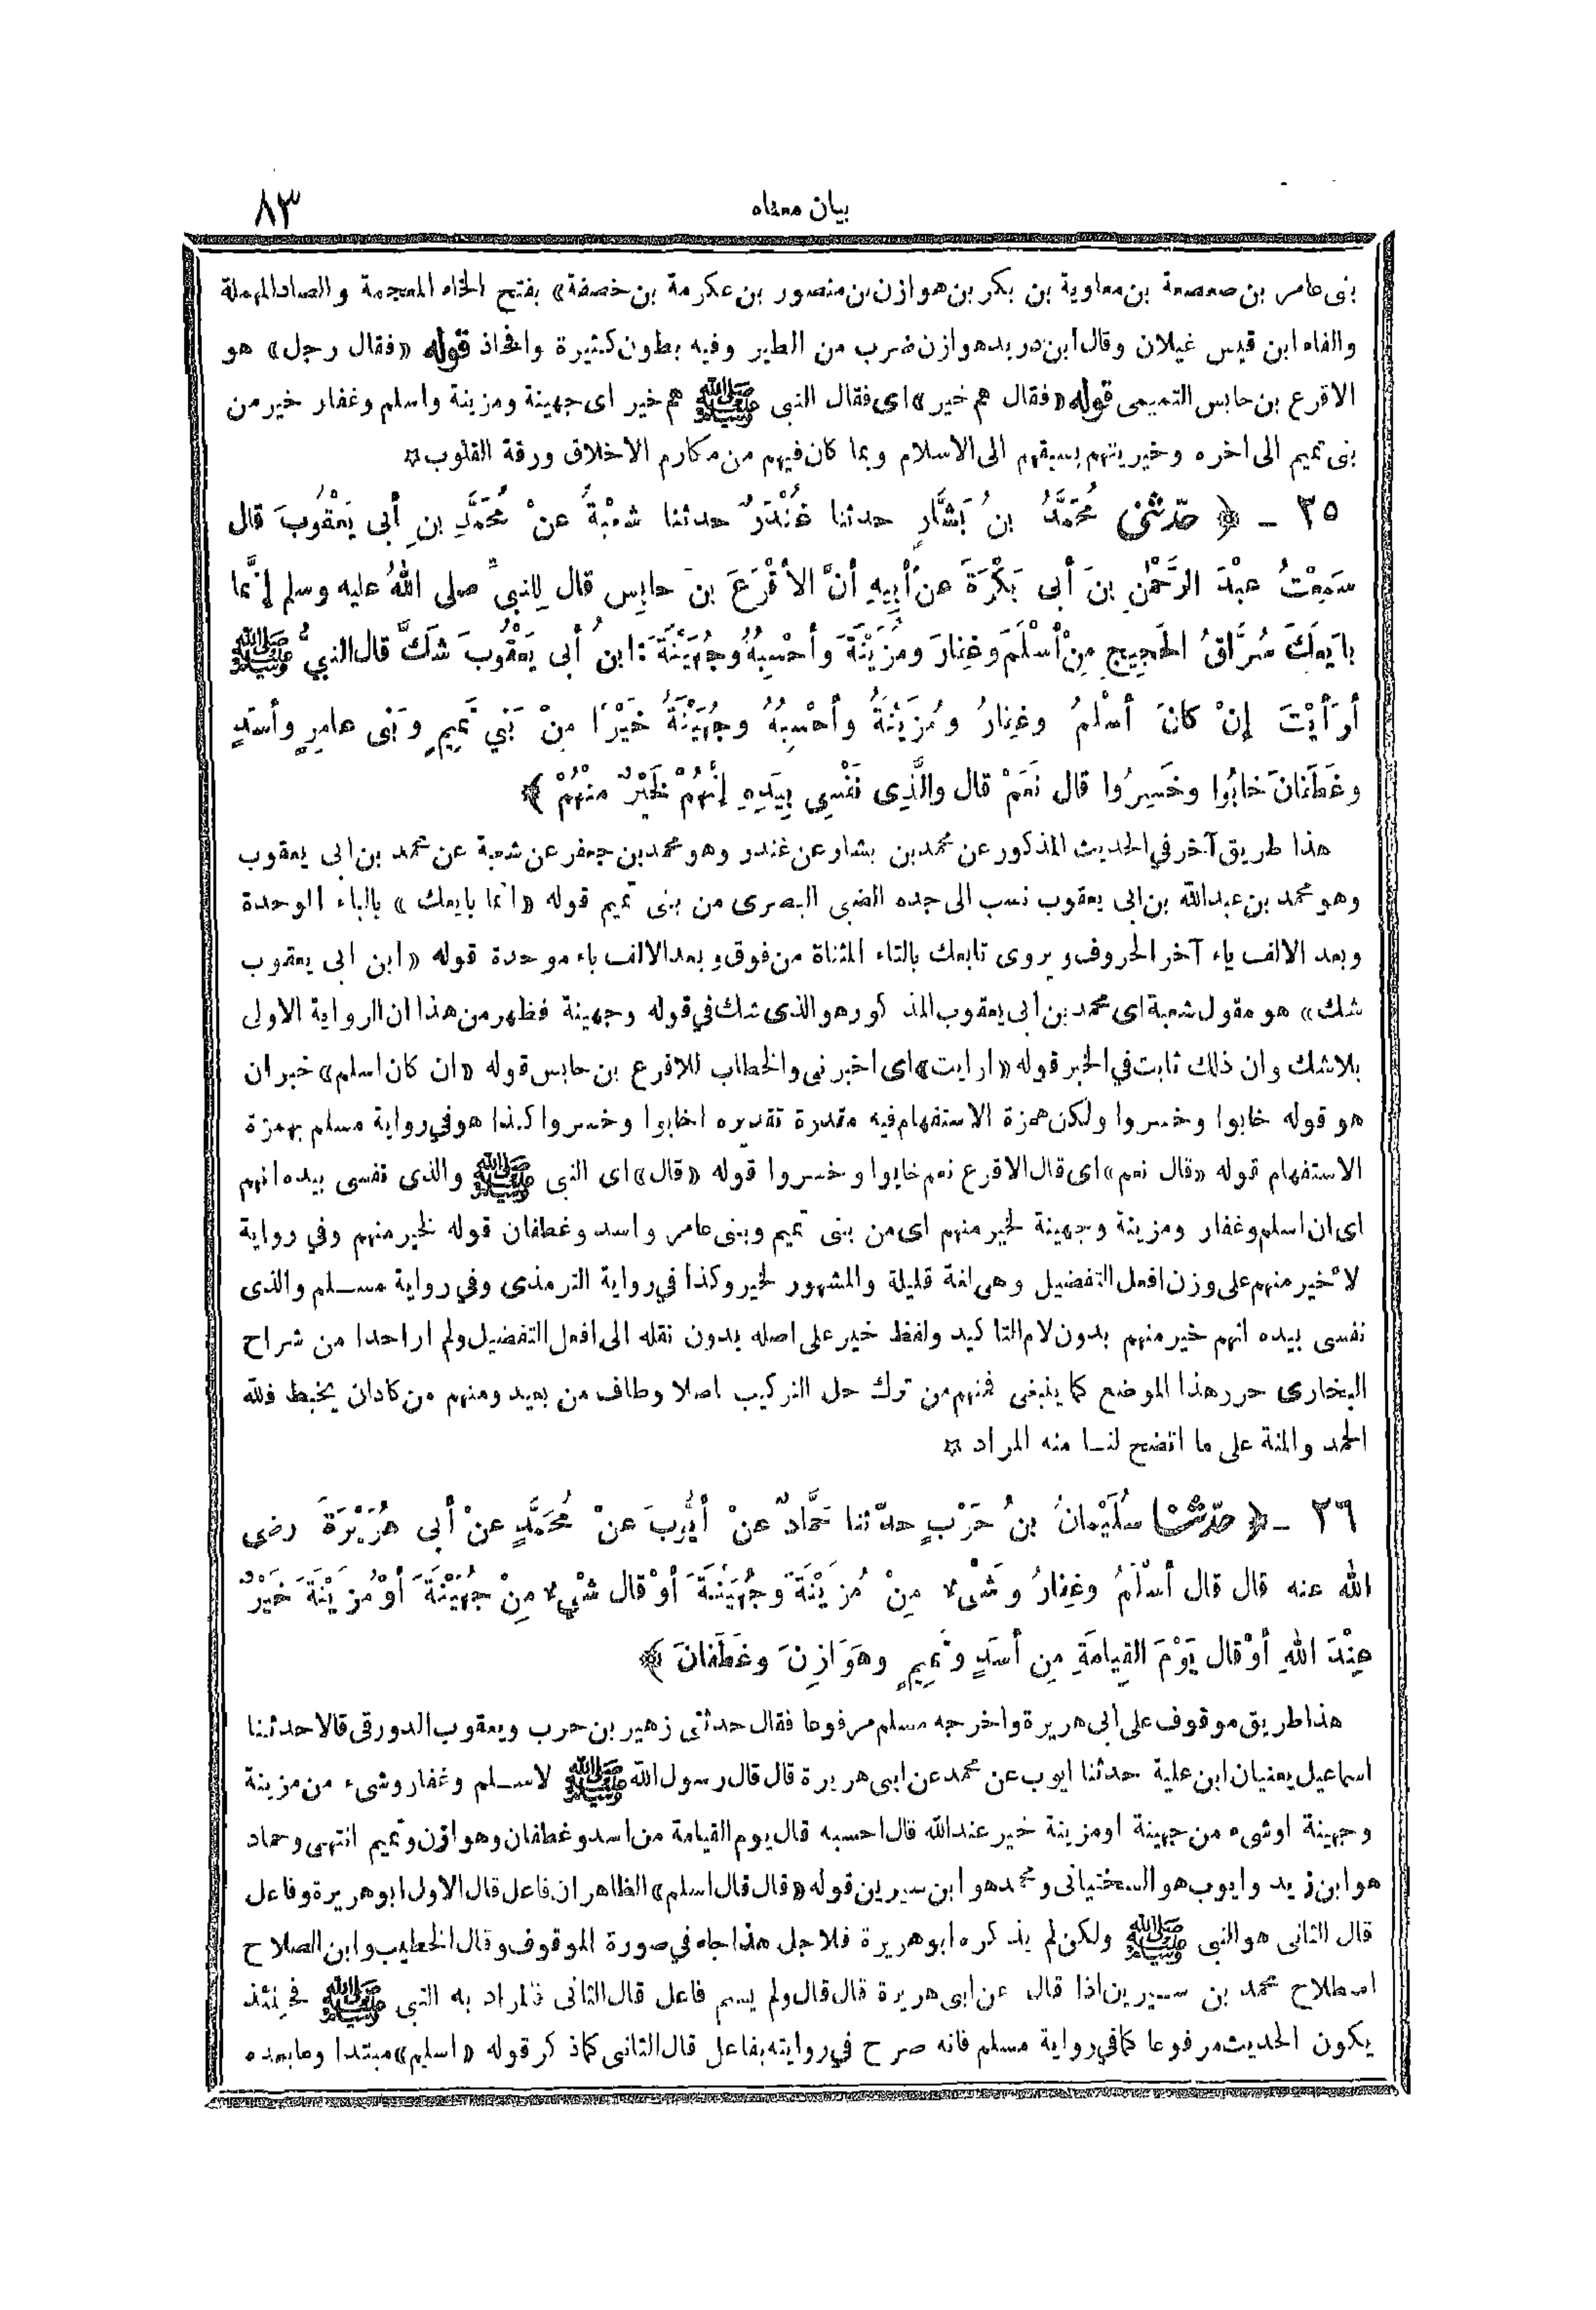 بيان معناه
٨٣
بنى عامر بن صعصعة بن معاوية بن بكر بن هوازن بن منصور بن عكرمة بن خصفة» بفتح الخاء المعجمة والصاد المهملة
والفاء ابن قيس غيلان وقال ابن دريد هوازن ضرب من الطير وفيه بطون كثيرة وافخاذ قوله «فقال رجل» هو
الاقرع بن حابس التميمى قوله «فقال هم خير» اى فقال النبى ﷺ هم خير اى جهينة ومزينة واسلم وغفار خير من
بنى تميم الى اخره وخيريتهم بسبقهم الى الاسلام وبما كان فيهم من مكارم الاخلاق ورقة القلوب ❊
٢٥ - ﴿ حدّثنى مُحَمَّدُ بنُ بَشَّارٍ حدثنا غُنْدَرٌ حدثنا شعْبَةُ عنْ مُحَمَّدِ بنِ أبى يَعْقُوبَ قال
سَمِعْتُ عبْدَ الرَّحْمٰنِ بنَ أبى بَكْرَةَ عن أبِيهِ أنَّ الأقْرَعَ بنَ حابِسٍ قال لِلنبىِّ صلى اللهُ عليه وسلم إنَّما
بايَعَكَ سُرَّاقُ الحَجِيجِ مِنْ أسْلَمَ وغِفارَ ومُزَيْنَةَ وأحْسِبُهُ وجُهَيْنَةَ : ابنُ أبى يَعْقُوبَ شَكَّ قال النبىُّ ﷺ
أرَأيْتَ إنْ كانَ أسْلمُ وغِفارُ ومُزَيْنَةُ وأحْسِبُهُ وجُهَيْنَةُ خَيْرًا مِنْ بَنِي تَمِيمٍ وبَنى عامِرٍ وأسَدٍ
وغَطَفانَ خابُوا وخَسِرُوا قال نَعَمْ قال والَّذِى نَفْسِى بِيَدِهِ إنَّهُمْ لَخَيْرٌ مِنْهُمْ ﴾
هذا طريق آخر في الحديث المذكور عن محمد بن بشار عن غندر وهو محمد بن جعفر عن شعبة عن محمد بن ابى يعقوب
وهو محمد بن عبدالله بن ابى يعقوب نسب الى جده الضبى البصرى من بنى تميم قوله «انما بايعك» بالباء الموحدة
وبعد الالف ياء آخر الحروف ويروى تابعك بالتاء المثناة من فوق وبعد الالف باء موحدة قوله «ابن ابى يعقوب
شك» هو مقول شعبة اى محمد بن أبى يعقوب المذكور هو الذى شك في قوله وجهينة فظهر من هذا ان الرواية الاولى
بلا شك وان ذلك ثابت في الخبر قوله «ارايت» اى اخبرنى والخطاب للاقرع بن حابس قوله «ان كان اسلم» خبر ان
هو قوله خابوا وخسروا ولكن همزة الاستفهام فيه مقدرة تقديره اخابوا وخسروا كذا هو في رواية مسلم بهمزة
الاستفهام قوله «قال نعم» اى قال الاقرع نعم خابوا وخسروا قوله «قال» اى النبى ﷺ والذى نفسى بيده انهم
اى ان اسلم وغفار ومزينة وجهينة لخير منهم اى من بنى تميم وبنى عامر واسد وغطفان قوله لخير منهم وفي رواية
لأخير منهم على وزن افعل التفضيل وهى لغة قليلة والمشهور لخير وكذا في رواية الترمذى وفي رواية مسلم والذى
نفسى بيده انهم خير منهم بدون لام التاكيد ولفظ خير على اصله بدون نقله الى افعل التفضيل ولم ار احدا من شراح
البخارى حرر هذا الموضع كما ينبغى فمنهم من ترك حل التركيب اصلا وطاف من بعيد ومنهم من كاد ان يخبط فلله
الحمد والمنة على ما اتضح لنا منه المراد ❊
٢٦ - ﴿ حدّثنا سُلَيْمانُ بنُ حَرْبٍ حدّثنا حَمَّادٌ عنْ أيُّوبَ عنْ مُحَمَّدٍ عنْ أبى هُرَيْرَةَ رضى
الله عنه قال قال أسْلَمُ وغِفارُ وشَىْءٌ مِنْ مُزَيْنَةَ وجُهَيْنَةَ أوْ قال شَىْءٌ مِنْ جُهَيْنَةَ أوْ مُزَيْنَةَ خَيْرٌ
عِنْدَ اللهِ أوْ قال يَوْمَ القِيامَةِ مِن أسَدٍ وتَمِيمٍ وهَوَازِنَ وغَطَفانَ ﴾
هذا طريق موقوف على ابى هريرة واخرجه مسلم مرفوعا فقال حدثنى زهير بن حرب ويعقوب الدورقى قالا حدثنا
اسماعيل يعنيان ابن علية حدثنا ايوب عن محمد عن ابى هريرة قال قال رسول الله ﷺ لاسلم وغفار وشىء من مزينة
وجهينة او شىء من جهينة او مزينة خير عند الله قال احسبه قال يوم القيامة من اسد وغطفان وهوازن وتميم انتهى وحماد
هو ابن زيد وايوب هو السختيانى ومحمد هو ابن سيرين قوله «قال قال اسلم» الظاهر ان فاعل قال الاول ابو هريرة وفاعل
قال الثانى هو النبى ﷺ ولكن لم يذكره ابو هريرة فلاجل هذا جاء في صورة الموقوف وقال الخطيب وابن الصلاح
اصطلاح محمد بن سيرين اذا قال عن ابى هريرة قال قال ولم يسم فاعل قال الثانى فالمراد به النبى ﷺ فحينئذ
يكون الحديث مرفوعا كما في رواية مسلم فانه صرح في روايته بفاعل قال الثانى كما ذكر قوله «اسلم» مبتدا وما بعده